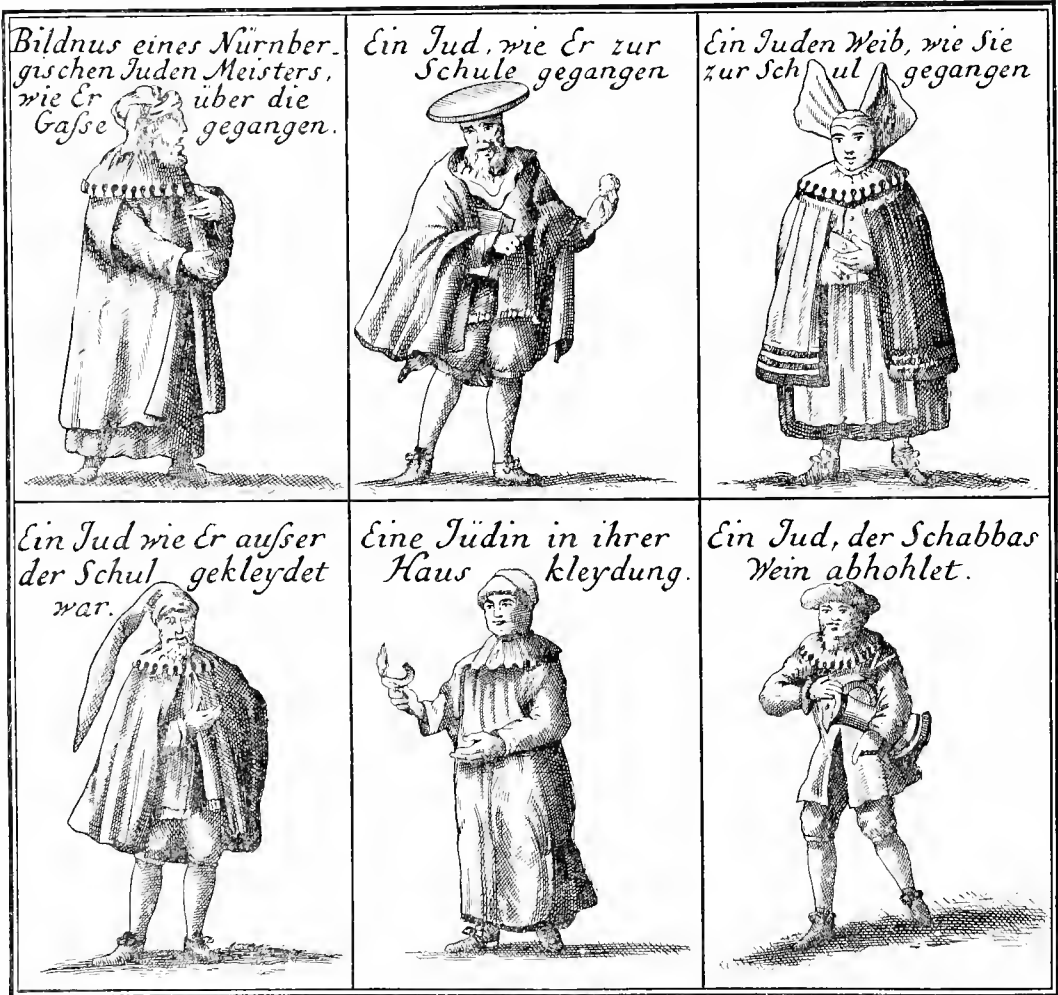 Bildnus eines Nürnber-
gischen Juden Meisters,
wie Er über die
Gaſse gegangen.
Ein Jud, wie Er zur
Schule gegangen
Ein Juden Weib, wie Sie
zur Schul gegangen
Ein Jud wie Er auſser
der Schul gekleydet
war.
Eine Jüdin in ihrer
Haus kleydung.
Ein Jud, der Schabbas
Wein abhohlet.